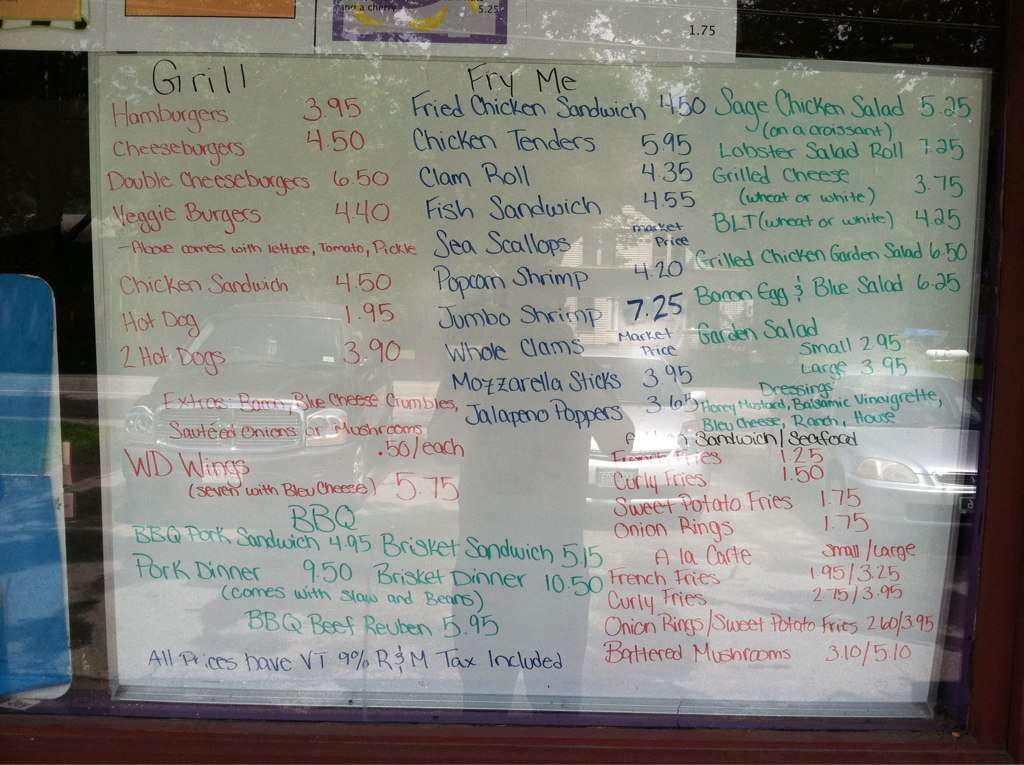 and a cherry
5.25
1.75
Grill
Hamburgers 3.95
Cheeseburgers 4.50
Double Cheeseburgers 6.50
Veggie Burgers 4.40
- Above comes with lettuce, Tomato, Pickle
Chicken Sandwich 4.50
Hot Dog 1.95
2 Hot Dogs 3.90
Extras: Bacon, Blue Cheese Crumbles,
Sautéed Onions or Mushrooms
.50/each
WD Wings
(seven with Bleu Cheese) 5.75
BBQ
BBQ Pork Sandwich 4.95 Brisket Sandwich 5.15
Pork Dinner 9.50 Brisket Dinner 10.50
(comes with slaw and Beans)
BBQ Beef Reuben 5.95
All Prices have VT 9% R&M Tax Included
Fry Me
Fried Chicken Sandwich 4.50
Chicken Tenders 5.95
Clam Roll 4.35
Fish Sandwich 4.55
Sea Scallops market Price
Popcorn Shrimp 4.20
Jumbo Shrimp 7.25
Whole Clams Market Price
Mozzarella Sticks 3.95
Jalapeno Poppers 3.65
Sage Chicken Salad 5.25
(on a croissant)
Lobster Salad Roll 7.25
Grilled Cheese 3.75
(wheat or white)
BLT (wheat or white) 4.25
Grilled Chicken Garden Salad 6.50
Bacon Egg & Blue Salad 6.25
Garden Salad
Small 2.95
Large 3.95
Dressings
Honey Mustard, Balsamic Vineigrette,
Bleu Cheese, Ranch, House
Sandwich/Seafood
French Fries 1.25
Curly Fries 1.50
Sweet Potato Fries 1.75
Onion Rings 1.75
A la Carte Small/Large
French Fries 1.95/3.25
Curly Fries 2.75/3.95
Onion Rings/Sweet Potato Fries 2.60/3.95
Battered Mushrooms 3.10/5.10